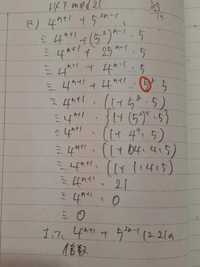 147 mod 21
(2) 4^{n+1} + 5^{2n-1}
≡ 4^{n+1} + (5^2)^{n-1} · 5
≡ 4^{n+1} + 25^{n-1} · 5
≡ 4^{n+1} + 4^{n-1} · 5
≡ 4^{n+1} + 4^{n+1} · 5^2 · 5
≡ 4^{n+1} · (1 + 5^2 · 5)
≡ 4^{n+1} · {1 + (5^2)^4 · 5}
≡ 4^{n+1} · (1 + 4^4 · 5)
≡ 4^{n+1} · (1 + 64 · 4 · 5)
≡ 4^{n+1} · (1 + 1 · 4 · 5)
≡ 4^{n+1} · 21
≡ 4^{n+1} · 0
≡ 0
よって 4^{n+1} + 5^{2n-1} は 21の
倍数